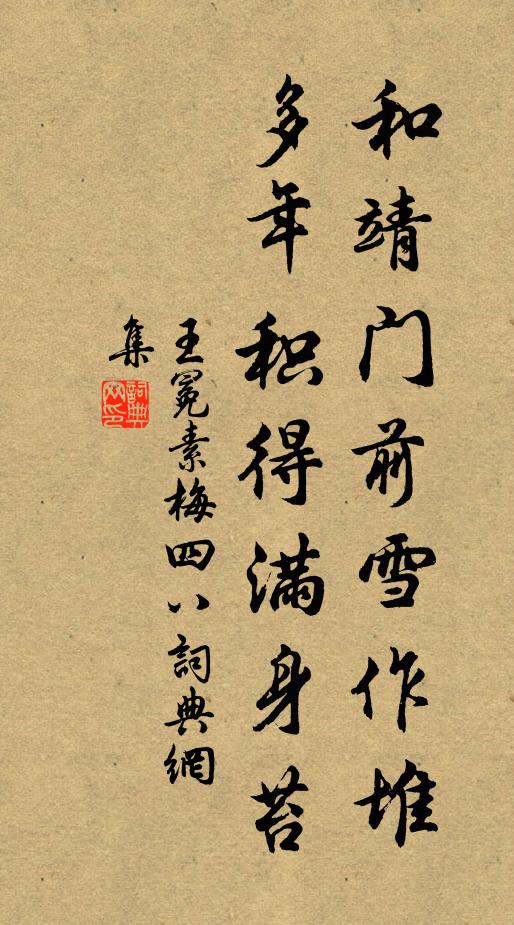 和靖门前雪作堆
多年积得满身苔
王冕素梅四八詞典網
集
詞典网印